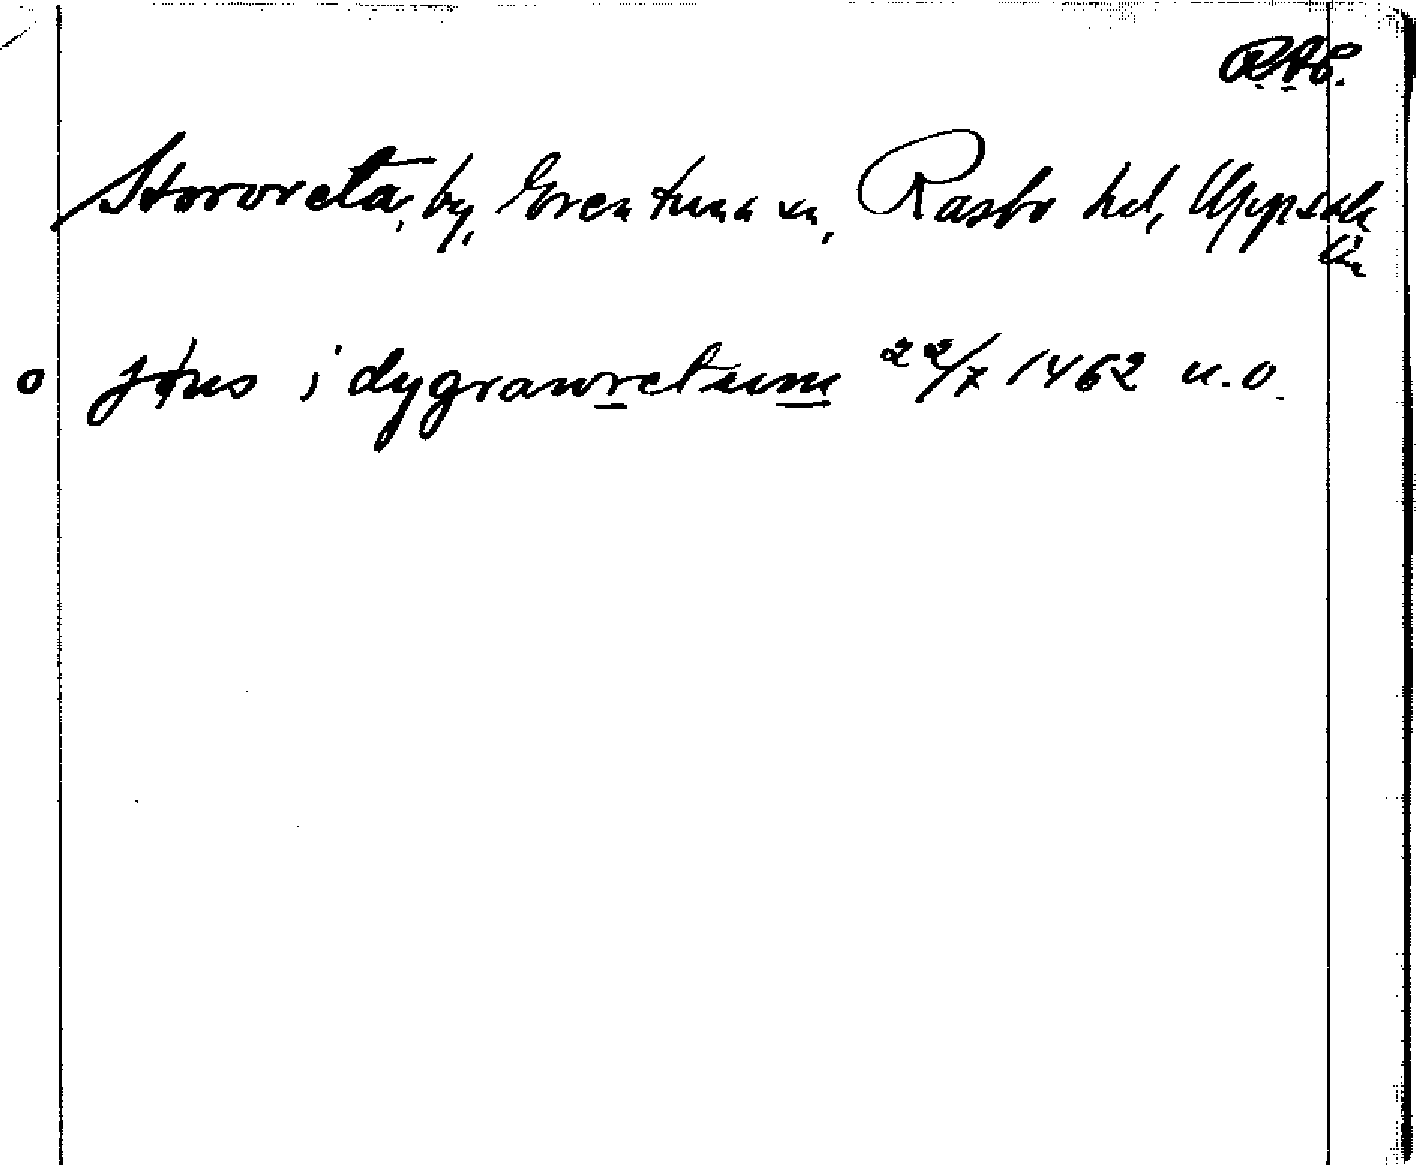 RAp.
Storvreta, by, Ærentuna sn, Rasbo hd, Uppsala
län
o jøns i dygranvretum 22/X 1462 u.o.